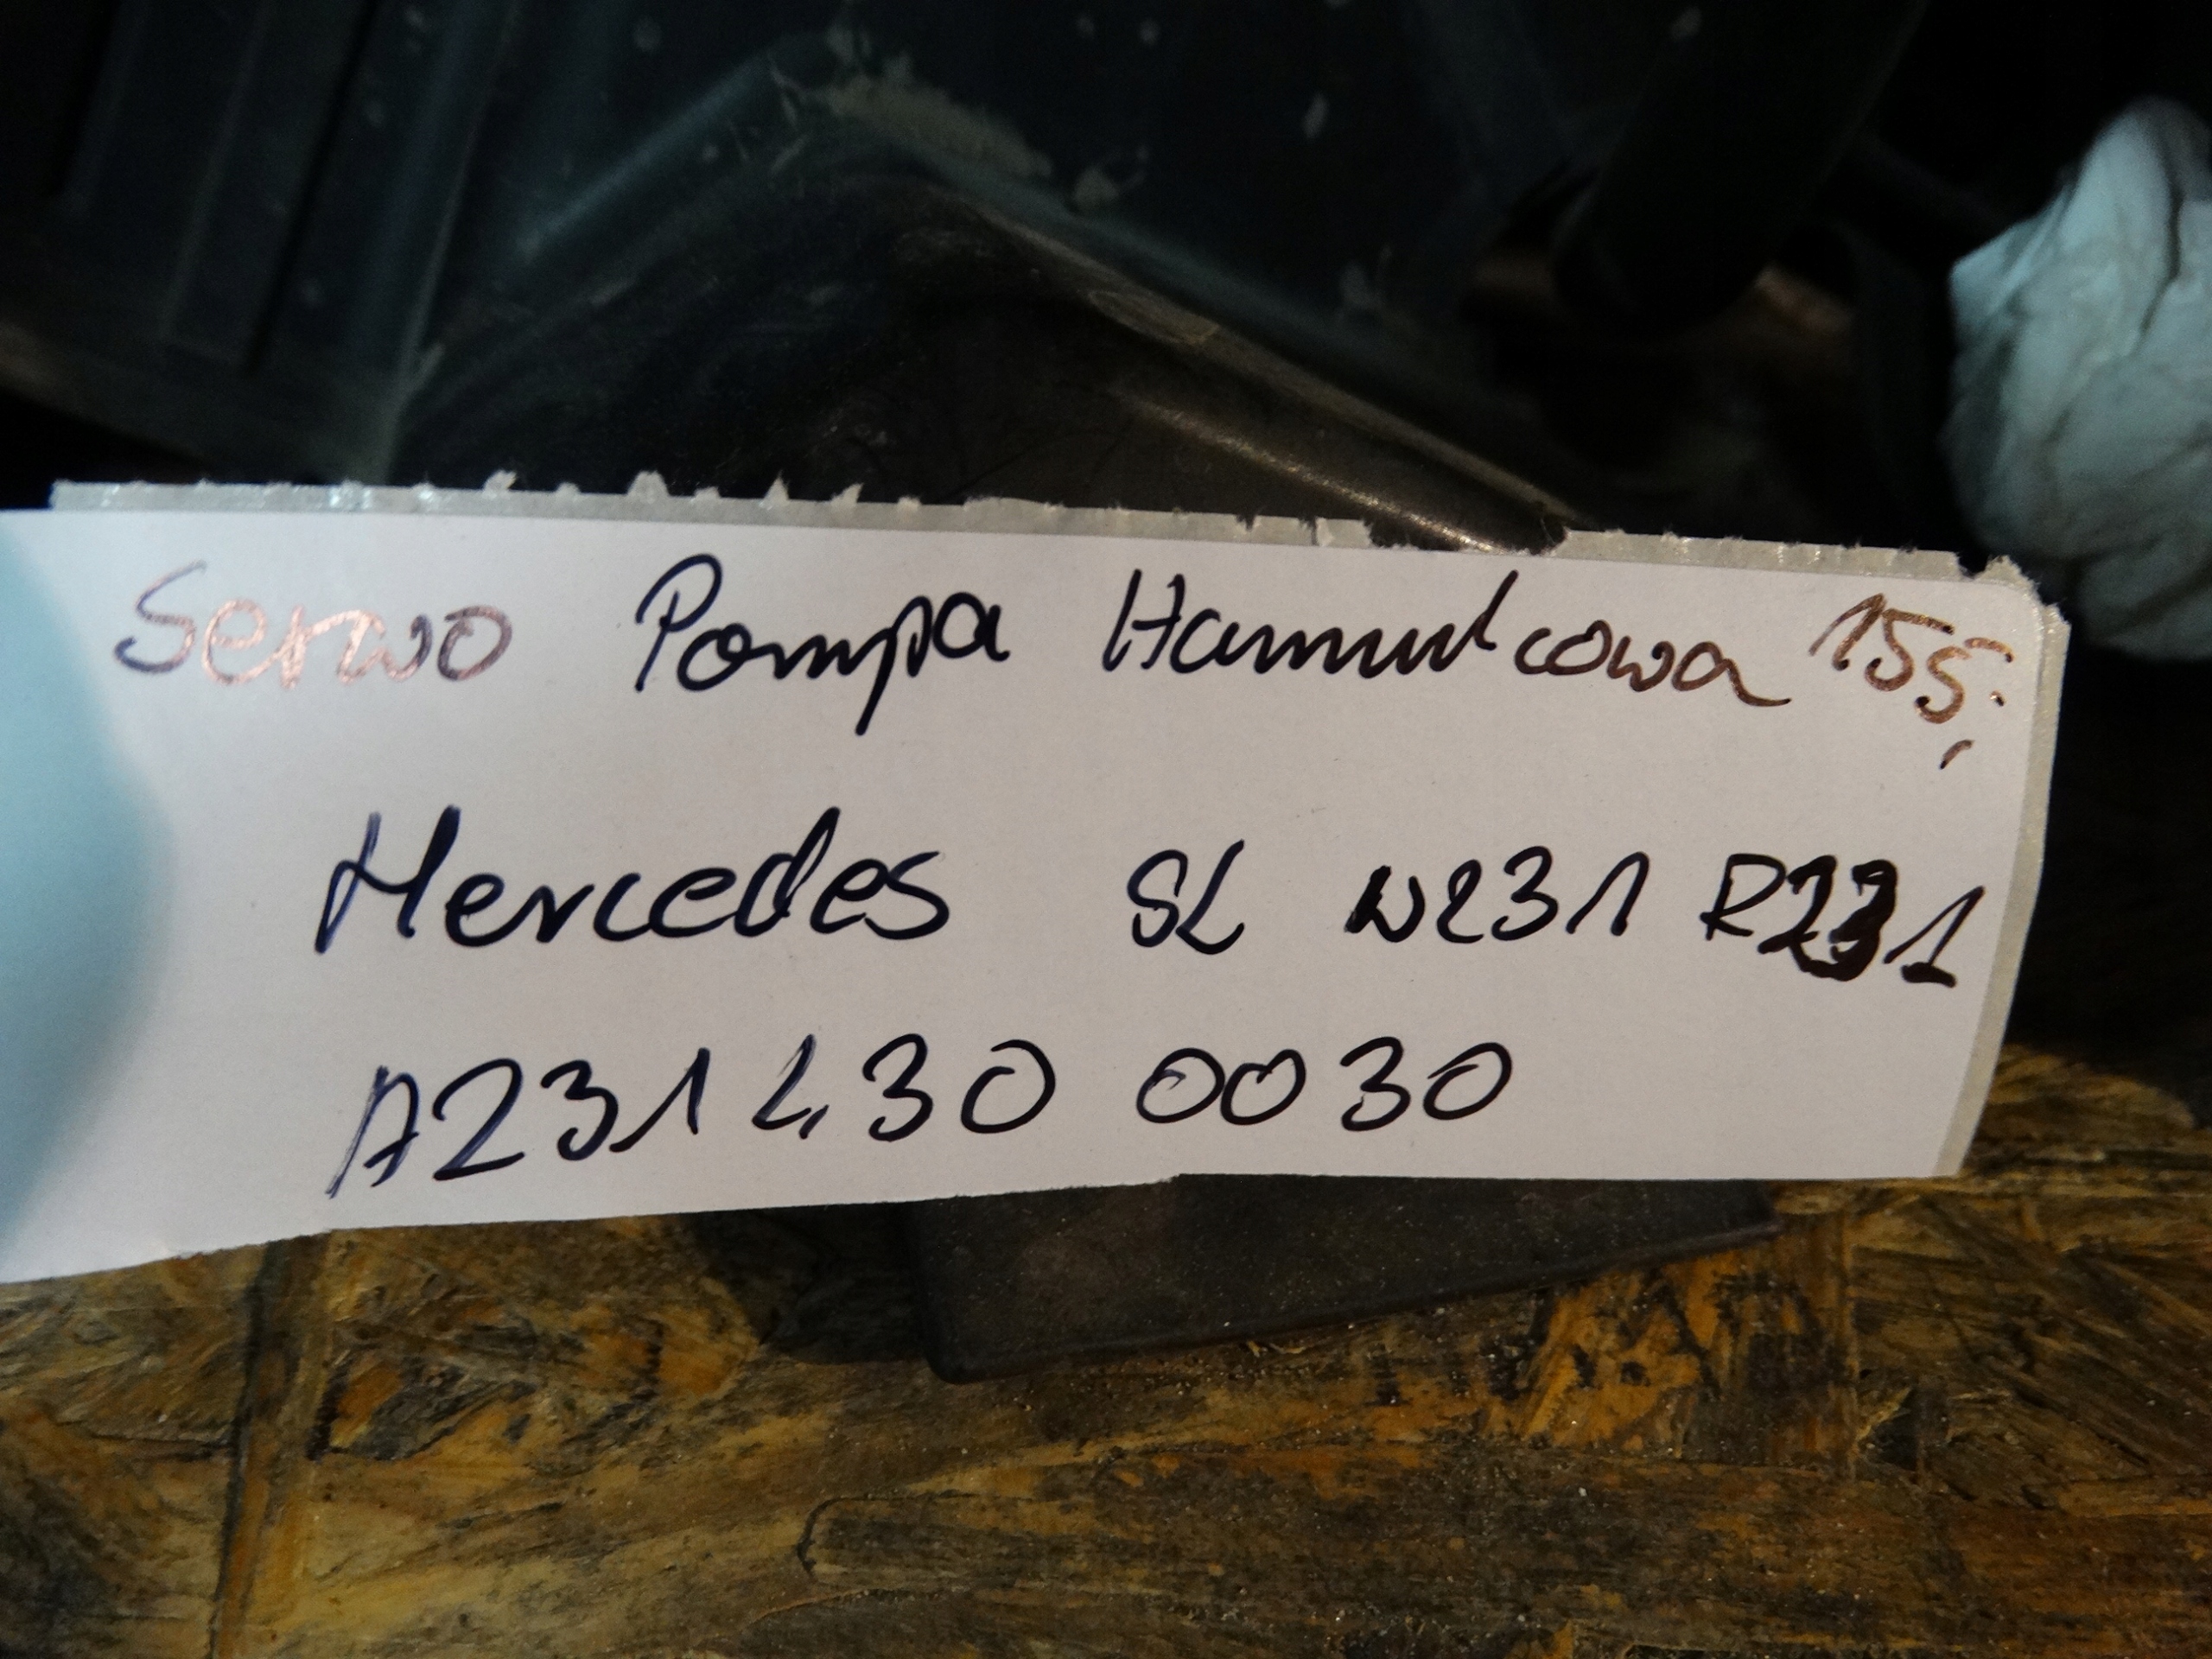 Serwo Pompa Hamulcowa
Mercedes SL W231 R231
A231 430 0030